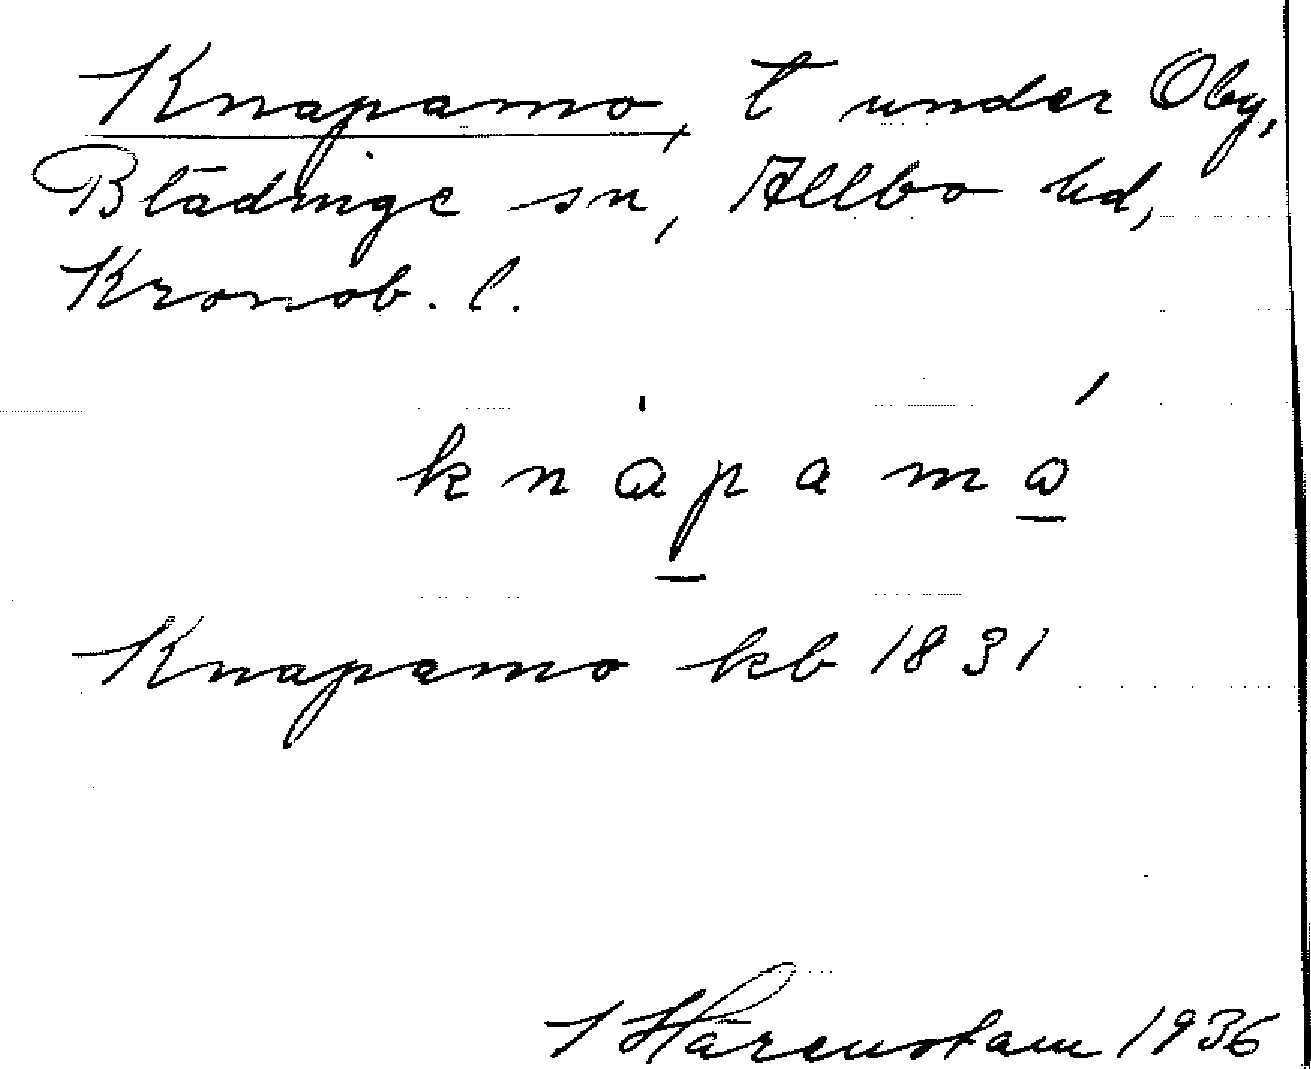 Knapamo, t under Oby,
Blädinge sn, Allbo hd,
Kronob. l.
knapamo
Knapamo kb 1831
Härenstam 1936